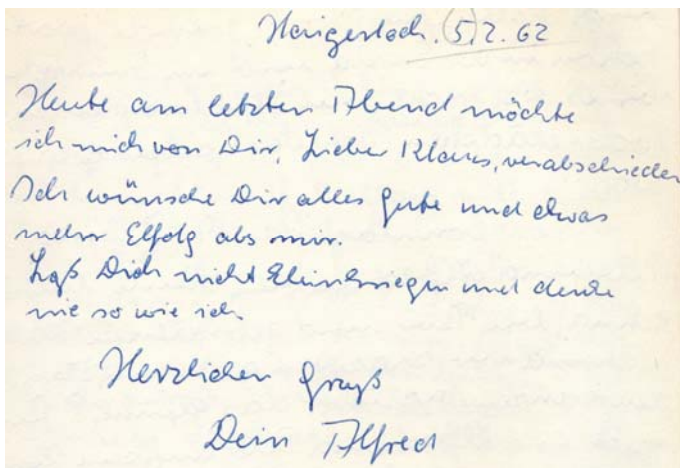 Haigerloch. 5.2.62
Heute am letzten Abend möchte
ich mich von Dir, Lieber Klaus, verabschieden
Ich wünsche Dir alles gute und etwas
mehr Elfolg als mir.
Laß Dich nicht kleinkriegen und denke
nie so wie ich.
Herzlichen gruß
Dein Alfred